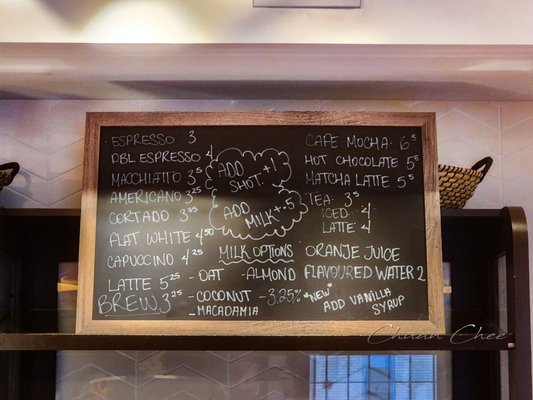 ESPRESSO 3
DBL ESPRESSO 4
MACCHIATTO 3.75
AMERICANO 3.75
CORTADO 3.75
FLAT WHITE 4.50
CAPUCCINO 4.25
LATTE 5.25
BREW 3.25
ADD +1
SHOT.
ADD +.5
MILK
MILK OPTIONS
- OAT - ALMOND
- COCONUT - 3.25%
- MACADAMIA
CAFE MOCHA 6.5
HOT CHOCOLATE 5.5
MATCHA LATTE 5.5
TEA: 3.5
ICED 4
LATTE 4
ORANJE JUICE
FLAVOURED WATER 2
*NEW*
ADD VANILLA
SYRUP
Chuan Chee